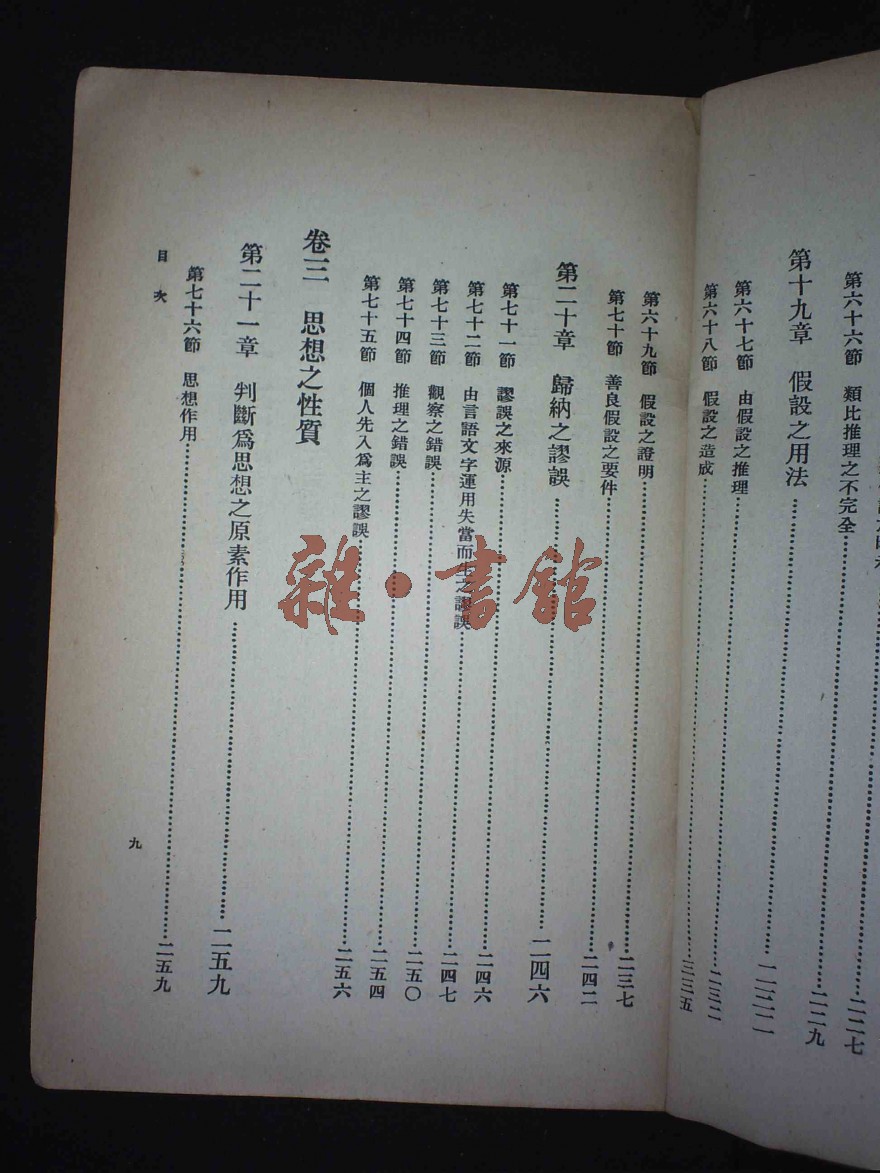 二二七
第六十六節 類比推理之不完全……二二九
第十九章 假設之用法……二三二
第六十七節 由假設之推理……二三二
第六十八節 假設之造成……二三五
第六十九節 假設之證明……二三七
第七十節 善良假設之要件……二四二
第二十章 歸納之謬誤……二四六
第七十一節 謬誤之來源……二四六
第七十二節 由言語文字運用失當而生之謬誤……二四七
第七十三節 觀察之錯誤……二五〇
第七十四節 推理之錯誤……二五四
第七十五節 個人先入爲主之謬誤……二五六
卷三 思想之性質
第二十一章 判斷爲思想之原素作用……二五九
第七十六節 思想作用……二五九
目次
九
雜·書館